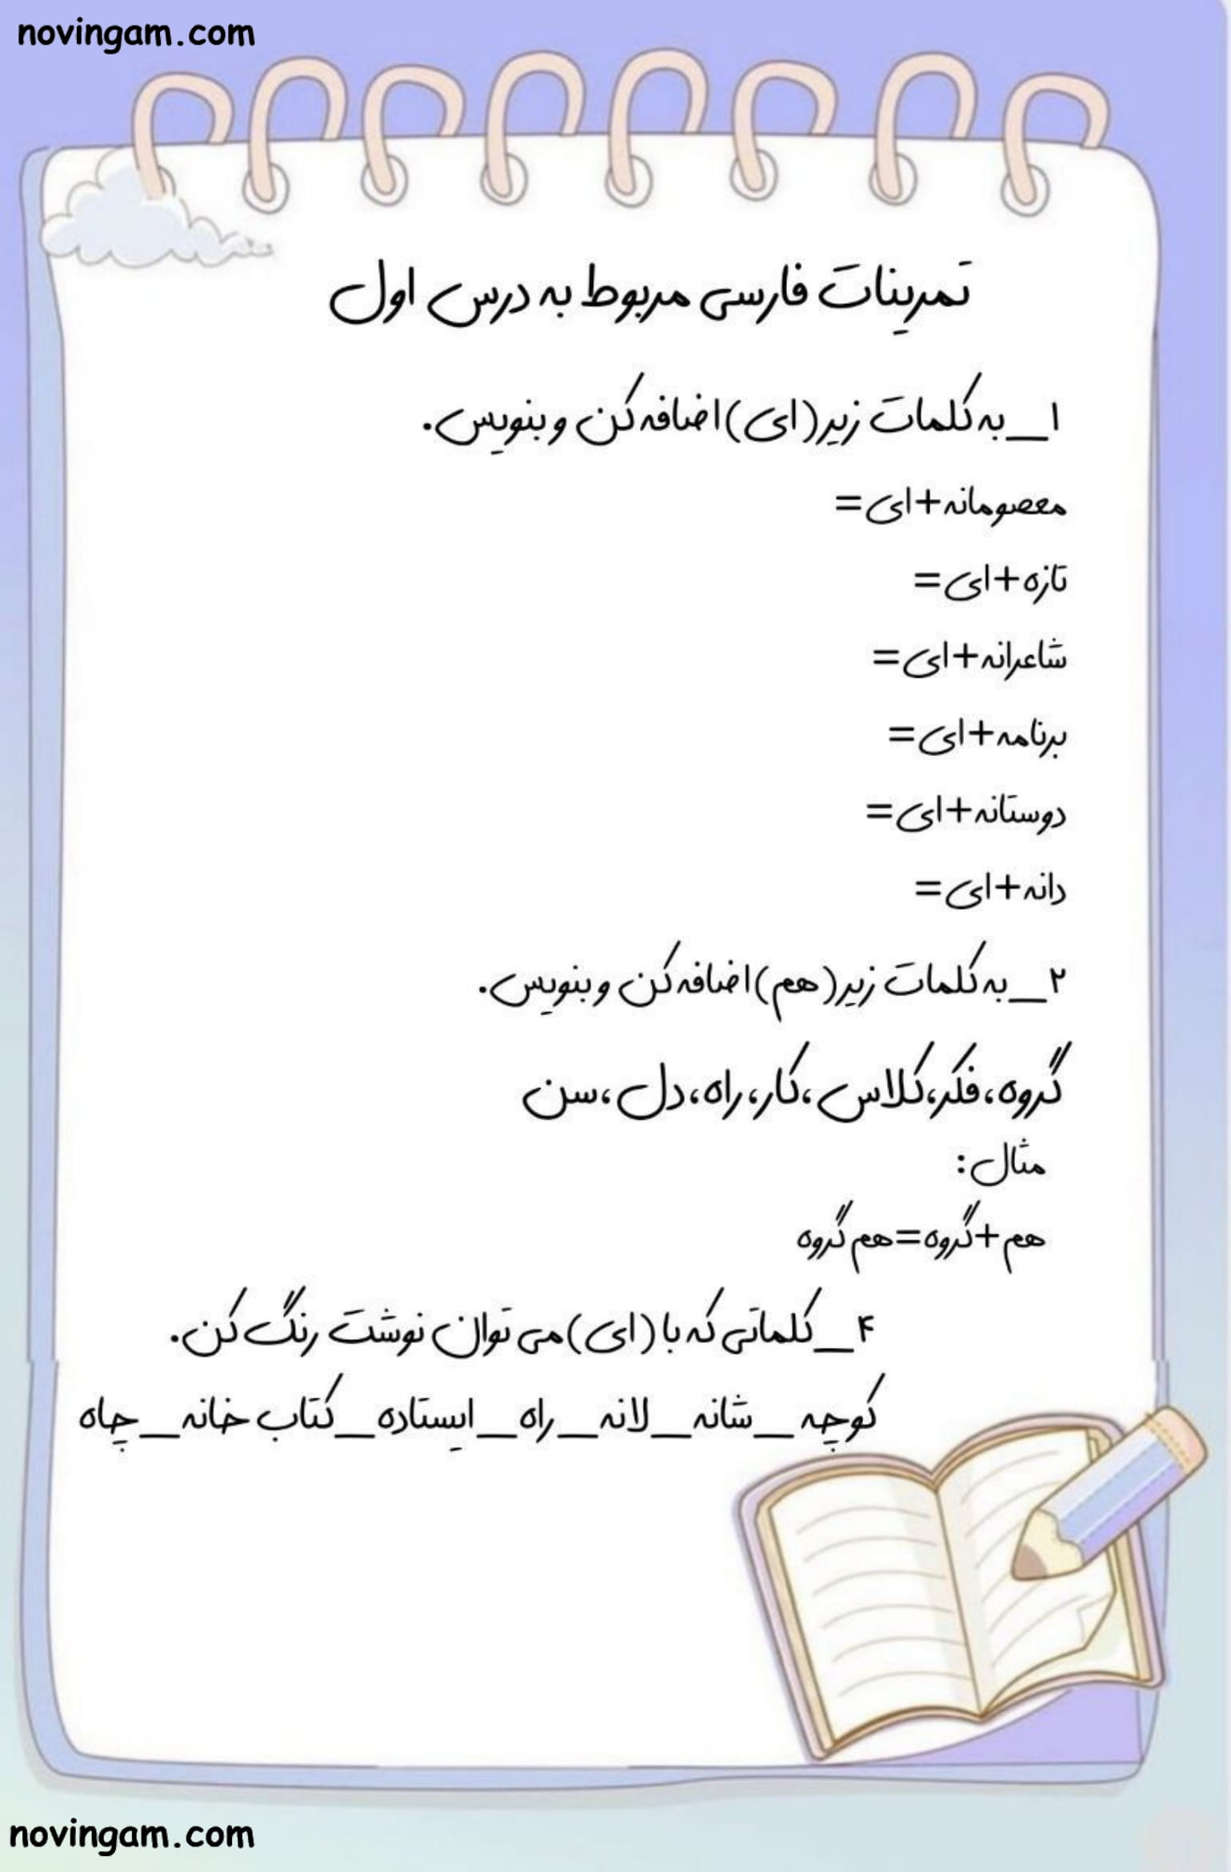 novingam.com
تمرینات فارسی مربوط به درس اول
۱_به کلمات زیر(ای)اضافه کن و بنویس.
معصومانه+ای=
تازه+ای=
شاعرانه+ای=
برنامه+ای=
دوستانه+ای=
دانه+ای=
۲_به کلمات زیر(هم)اضافه کن و بنویس.
گروه،فکر،کلاس،کار،راه،دل،سن
مثال:
هم+گروه=هم گروه
۴_کلماتی که با(ای)می توان نوشت رنگ کن.
کوچه_شانه_لانه_راه_ایستاده_کتاب خانه_چاه
novingam.com